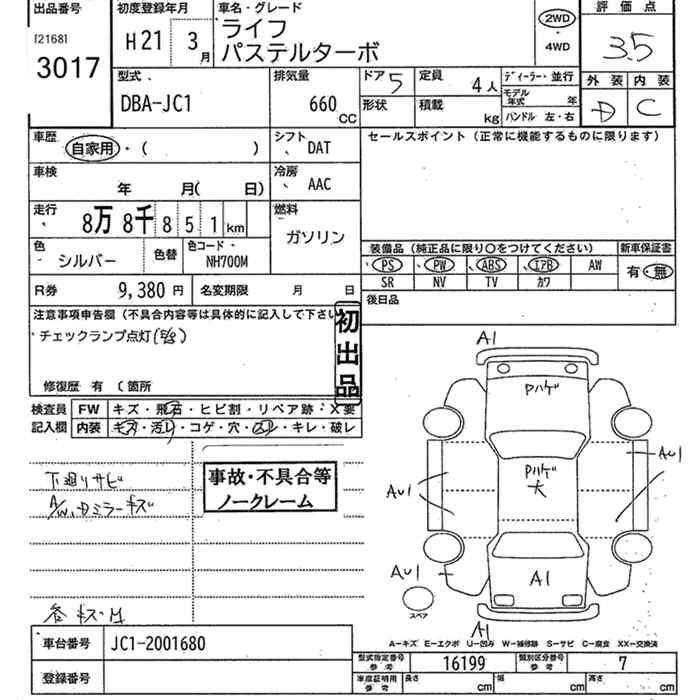 出品番号
[2168]
3017
初度登録年月
H21 3月
車名・グレード
ライフ
パステルターボ
2WD
・
4WD
評価点
3.5
型式
DBA-JC1
排気量
660
CC
ドア 5
定員 4人
ディーラー・並行
形状
積載 kg
モデル年式 年
ハンドル 左・右
外装 内装
D C
車歴
自家用・( )
シフト
DAT
セールスポイント(正常に機能するものに限ります)
車検
年 月( 日)
冷房
AAC
走行
8万8千851km
燃料
ガソリン
色
シルバー
色替
色コード
NH700M
装備品(純正品に限り○をつけてください)
新車保証書
PS PW ABS エアB AW
SR NV TV カワ
有・無
R券 9,380円
名変期限 月 日
後日品
注意事項申告欄(不具合内容等は具体的に記入して下さい
チェックランプ点灯
修復歴 有 (箇所
初出品
検査員
記入欄
FW キズ・飛石・ヒビ割・リペア跡・X要
内装 キズ・汚レ・コゲ・穴・スレ・キレ・破レ
下廻りサビ
A/W、Dミラーキズ
各キズ・凹
事故・不具合等
ノークレーム
A1
Pハゲ
Pハゲ
大
AU1
AU1
AU1
A1
A1
スペア
A-キズ E-エクボ U-凹み W-補修跡 S-サビ C-腐食 XX-交換済
車台番号 JC1-2001680
登録番号
型式指定番号
参考
16199
類別区分番号
参考
7
車庫証明用
参考
長さ cm
幅 cm
高さ cm